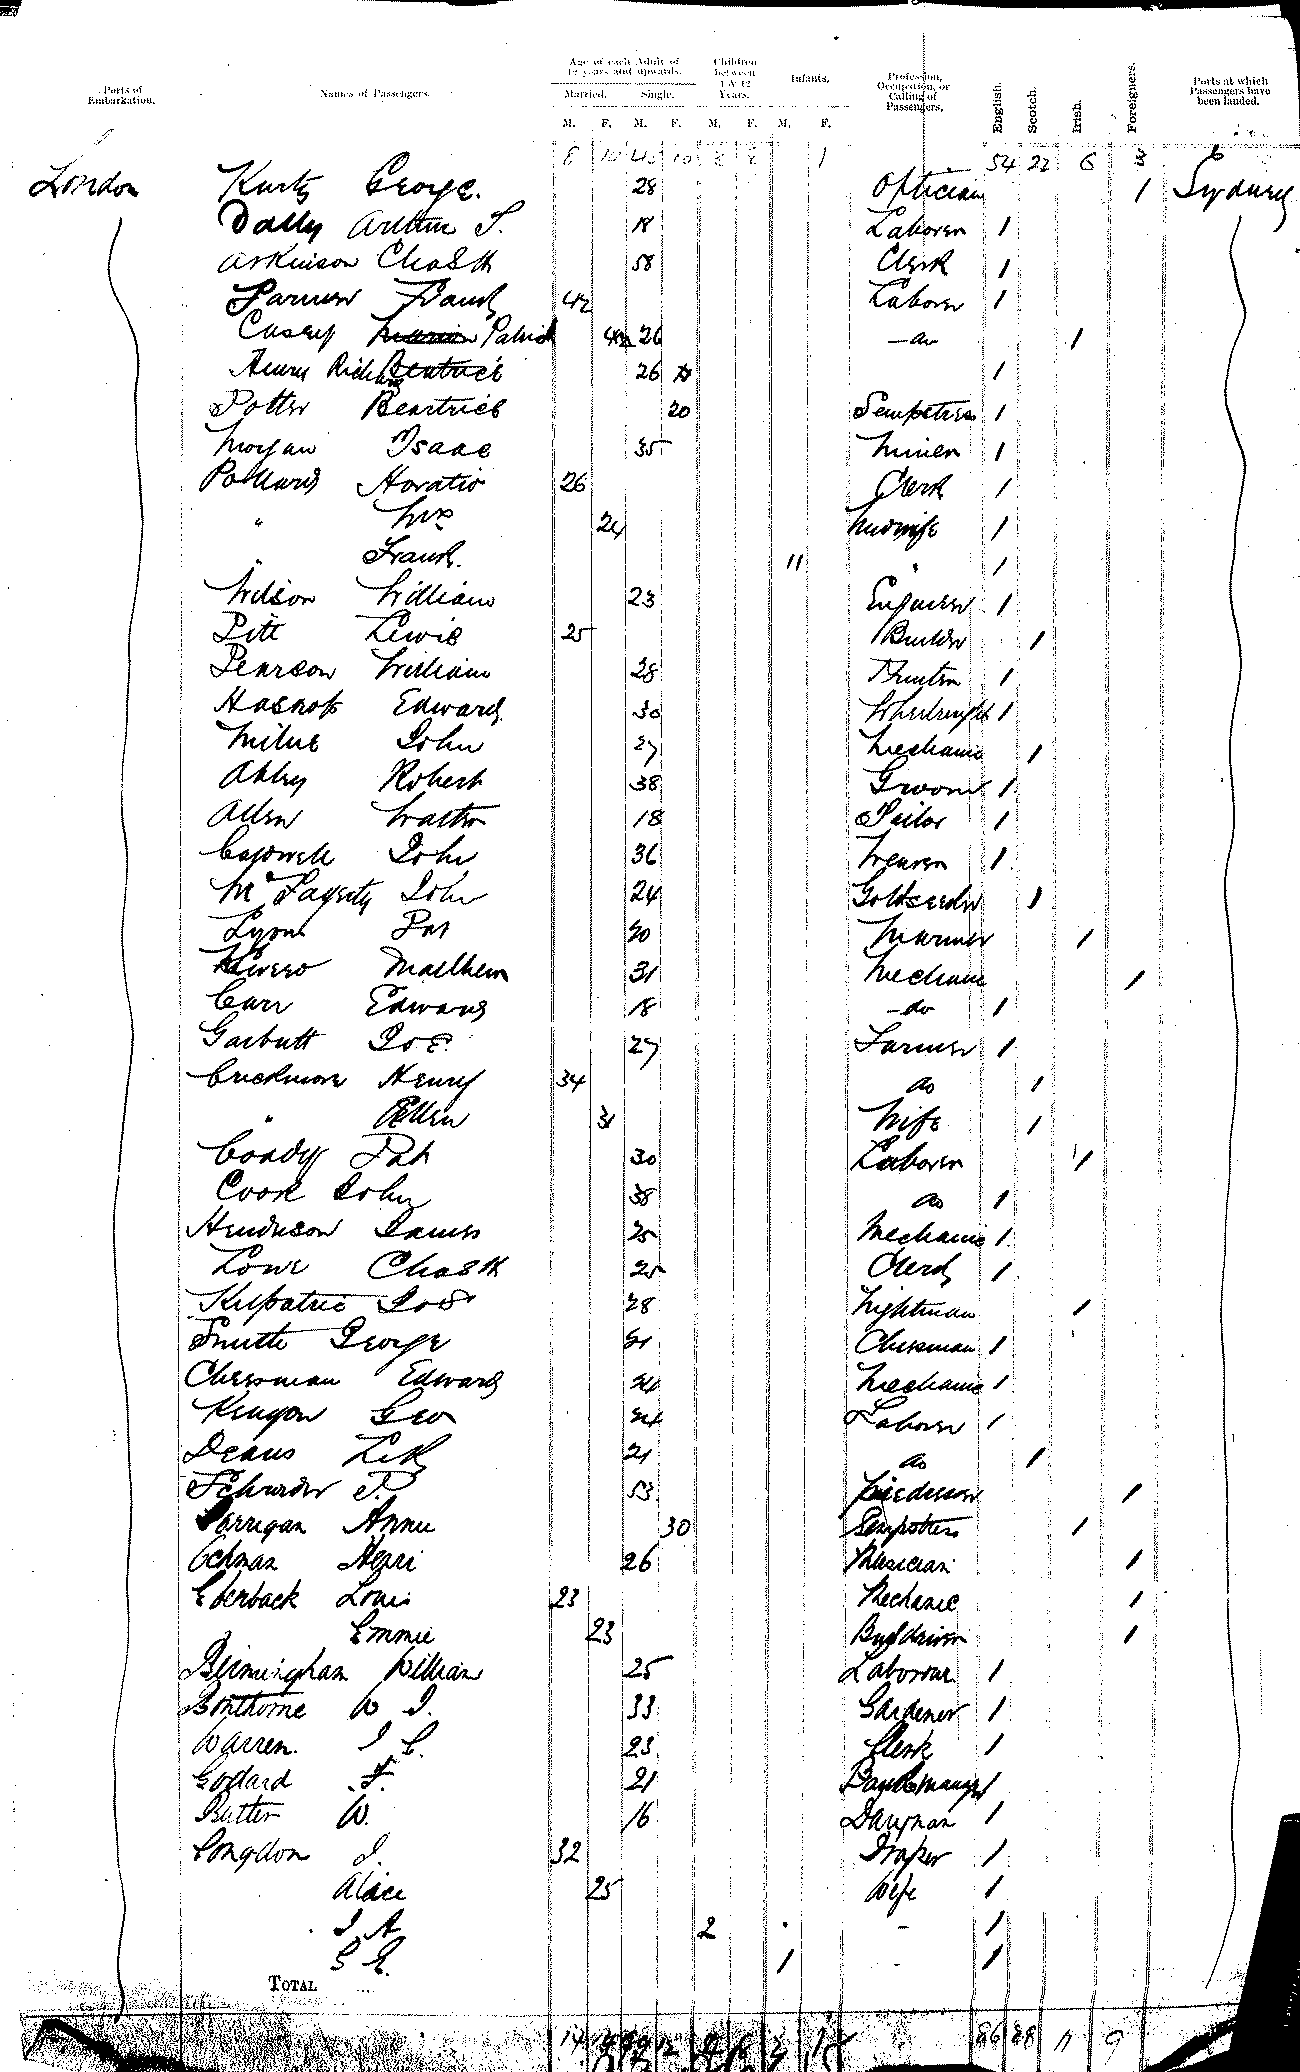 Ports of Embarkation. Names of Passengers. Age of each Adult of 12 years and upwards. Children between 1 & 12 Years. Infants. Profession, Occupation, or Calling of Passengers. English. Scotch. Irish. Foreigners. Ports at which Passengers have been landed.
Married. Single.
M. F. M. F. M. F. M. F.
8 10 45 10 2 2 1 54 22 6
London Kurtz George. 28 Optician 1 Sydney
Dally Arthur S. 18 Laborer 1
Atkinson Chas H 58 Clerk 1
Farmer Frank 42 Laborer 1
Casey Patrick 26 - do 1
Henry Richard Beatrice 26 1
Potter Beatrice 20 Sempstress 1
Morgan Isaac 35 Miner 1
Pollard Horatio 26 Clerk 1
" Mrs 24 Midwife 1
" Frank. 11 " 1
Wilson William 23 Engineer 1
Pitt Lewis 25 Builder 1
Pearson William 28 Printer 1
Edward 30 Wheelwright 1
Milne John 27 Mechanic 1
Robert 38 Groom 1
Allen Walter 18 Sailor 1
John 36 Weaver 1
McFagerty John 24 1
Lyons Pat 20 Mariner 1
Matthew 31 Mechanic 1
Carr Edward 18 - do 1
Garbutt Jos. 27 Farmer 1
Crickmore Henry 34 do 1
" Ellen 31 Wife 1
Coady Pat 30 Laborer 1
Cook John 38 do 1
Henderson James 25 Mechanic 1
Lowe Chas H 25 Clerk 1
Kilpatric Jos 28 Nightman 1
Smith George 21 1
Cheesman Edward 24 Mechanic 1
Kenyon Geo 24 Laborer 1
Deans 21 do 1
Schroder P. 53 1
Annie 30 Sempstress 1
Henri 26 Musician 1
Eberback Louis 23 Mechanic 1
Emmie 23 1
Birmingham William 25 Labourer 1
Bonthorne W J. 33 Gardener 1
Warren. J C. 23 Clerk 1
Godard F. 21 1
Butter W. 16 Drayman 1
Congdon J. 32 Draper 1
Alice 25 Wife 1
J A 2 - 1
G E. 1 1
Total
14 12 86 28 11 9